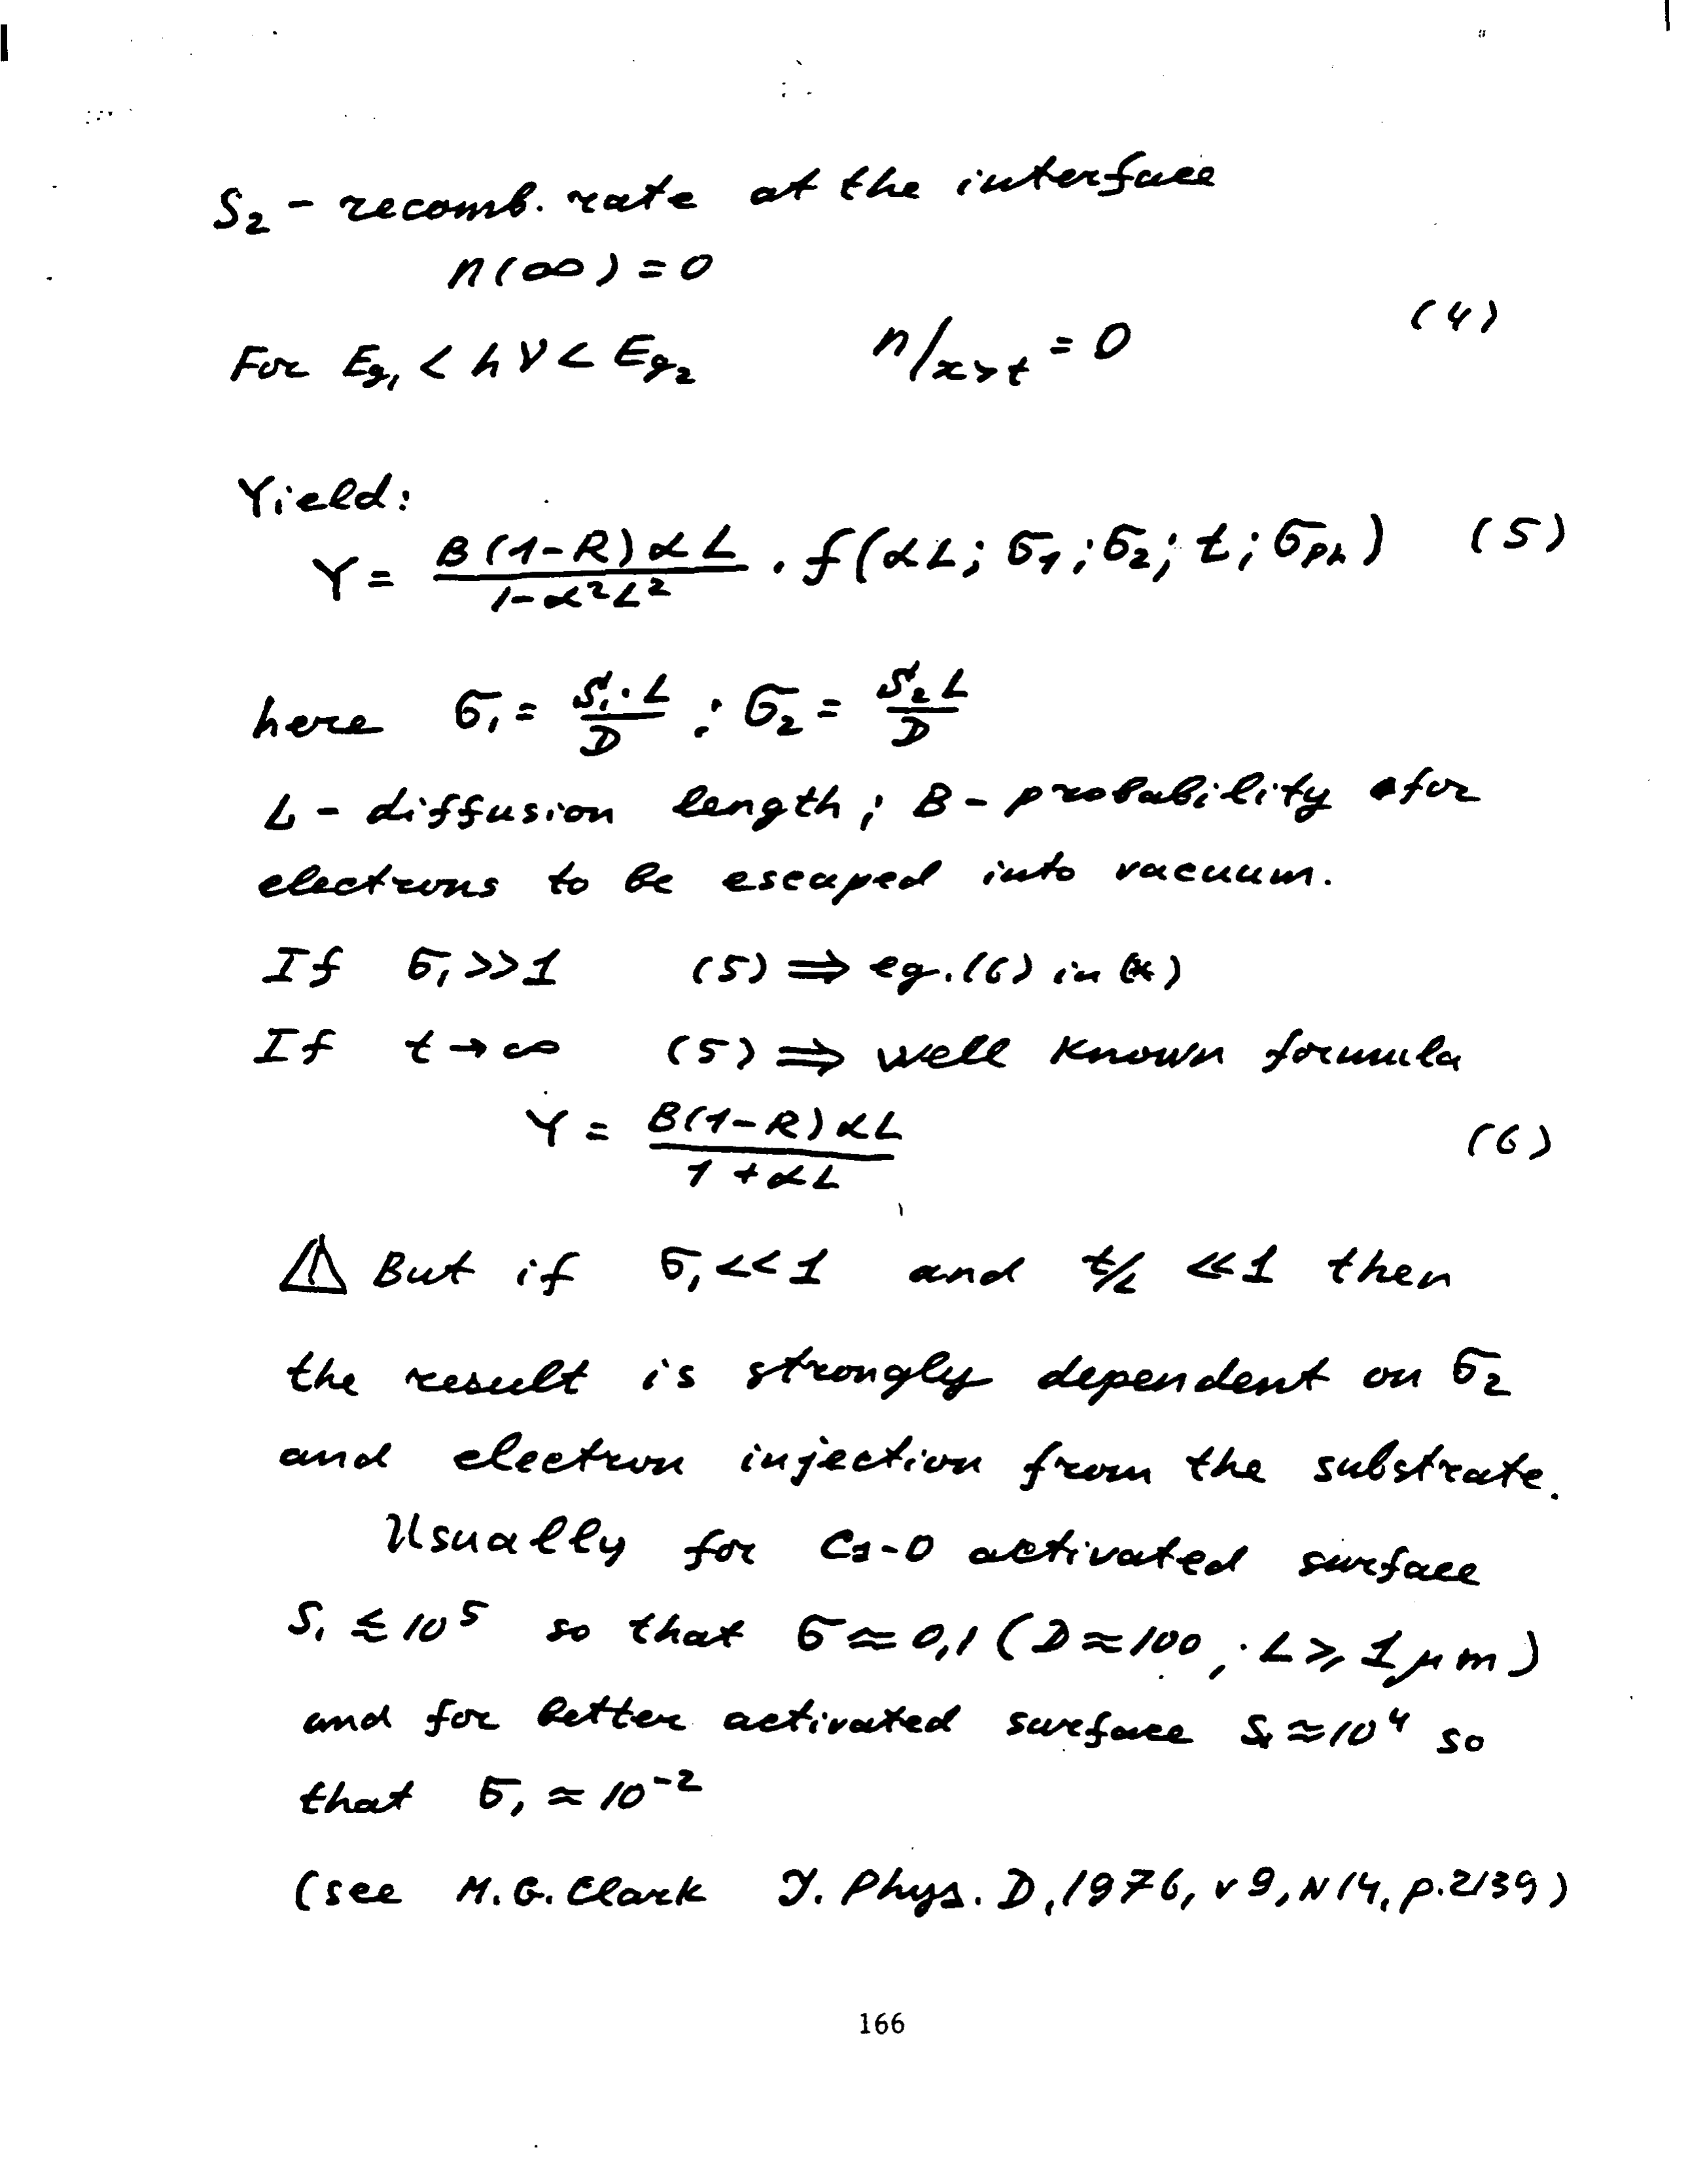 S₂ - recomb. rate at the interface
n(∞) = 0
(4)
For Eg₁ < hν < Eg₂ n/x>t = 0
Yield:
Y = B(1-R)αL / 1-α²L² · f(αL; σ₁; σ₂; t; σph) (5)
here σ₁ = S₁·L / D ; σ₂ = S₂L / D
L - diffusion length; B - probability for
electrons to be escaped into vacuum.
If σ₁ >> 1 (5) ⇒ eq. (6) in (*)
If t → ∞ (5) ⇒ well known formula
Y = B(1-R)αL / 1 + αL (6)
⚠ But if σ₁ << 1 and t/L << 1 then
the result is strongly dependent on σ₂
and electron injection from the substrate.
Usually for Cs-O activated surface
S₁ ≲ 10⁵ so that σ ≈ 0,1 (D ≈ 100, L ⩾ 1 μm)
and for better activated surface S₁ ≈ 10⁴ so
that σ₁ ≈ 10⁻²
(see M.G. Clark J. Phys. D, 1976, v 9, N 14, p. 2139)
166